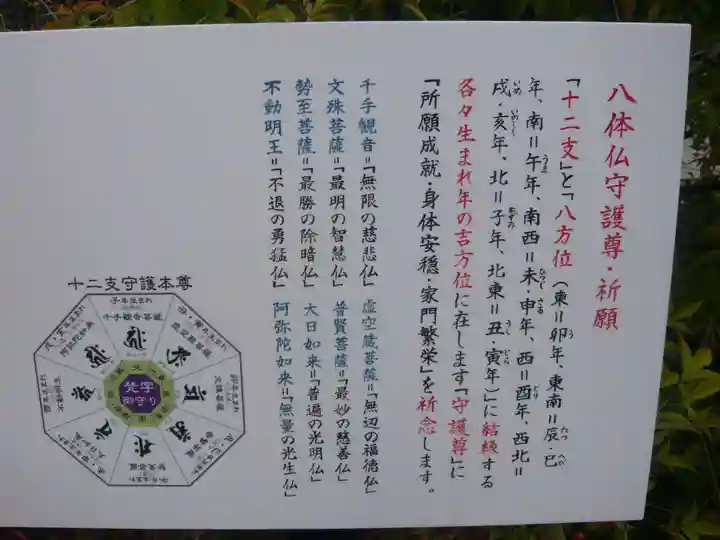 八体仏守護尊・祈願
「十二支」と「八方位（東＝卯年、東南＝辰・巳
年、南＝午年、南西＝未・申年、西＝酉年、西北＝
戌・亥年、北＝子年、北東＝丑・寅年）」に結縁する
各々生まれ年の吉方位に在します「守護尊」に
「所願成就・身体安穏・家門繁栄」を祈念します。
千手観音＝「無限の慈悲仏」 虚空蔵菩薩＝「無辺の福徳仏」
文殊菩薩＝「最明の智慧仏」 普賢菩薩＝「最妙の慈善仏」
勢至菩薩＝「最勝の除暗仏」 大日如来＝「普遍の光明仏」
不動明王＝「不退の勇猛仏」 阿弥陀如来＝「無量の光生仏」
十二支守護本尊
子年生まれ
千手観音菩薩
梵字
御守り